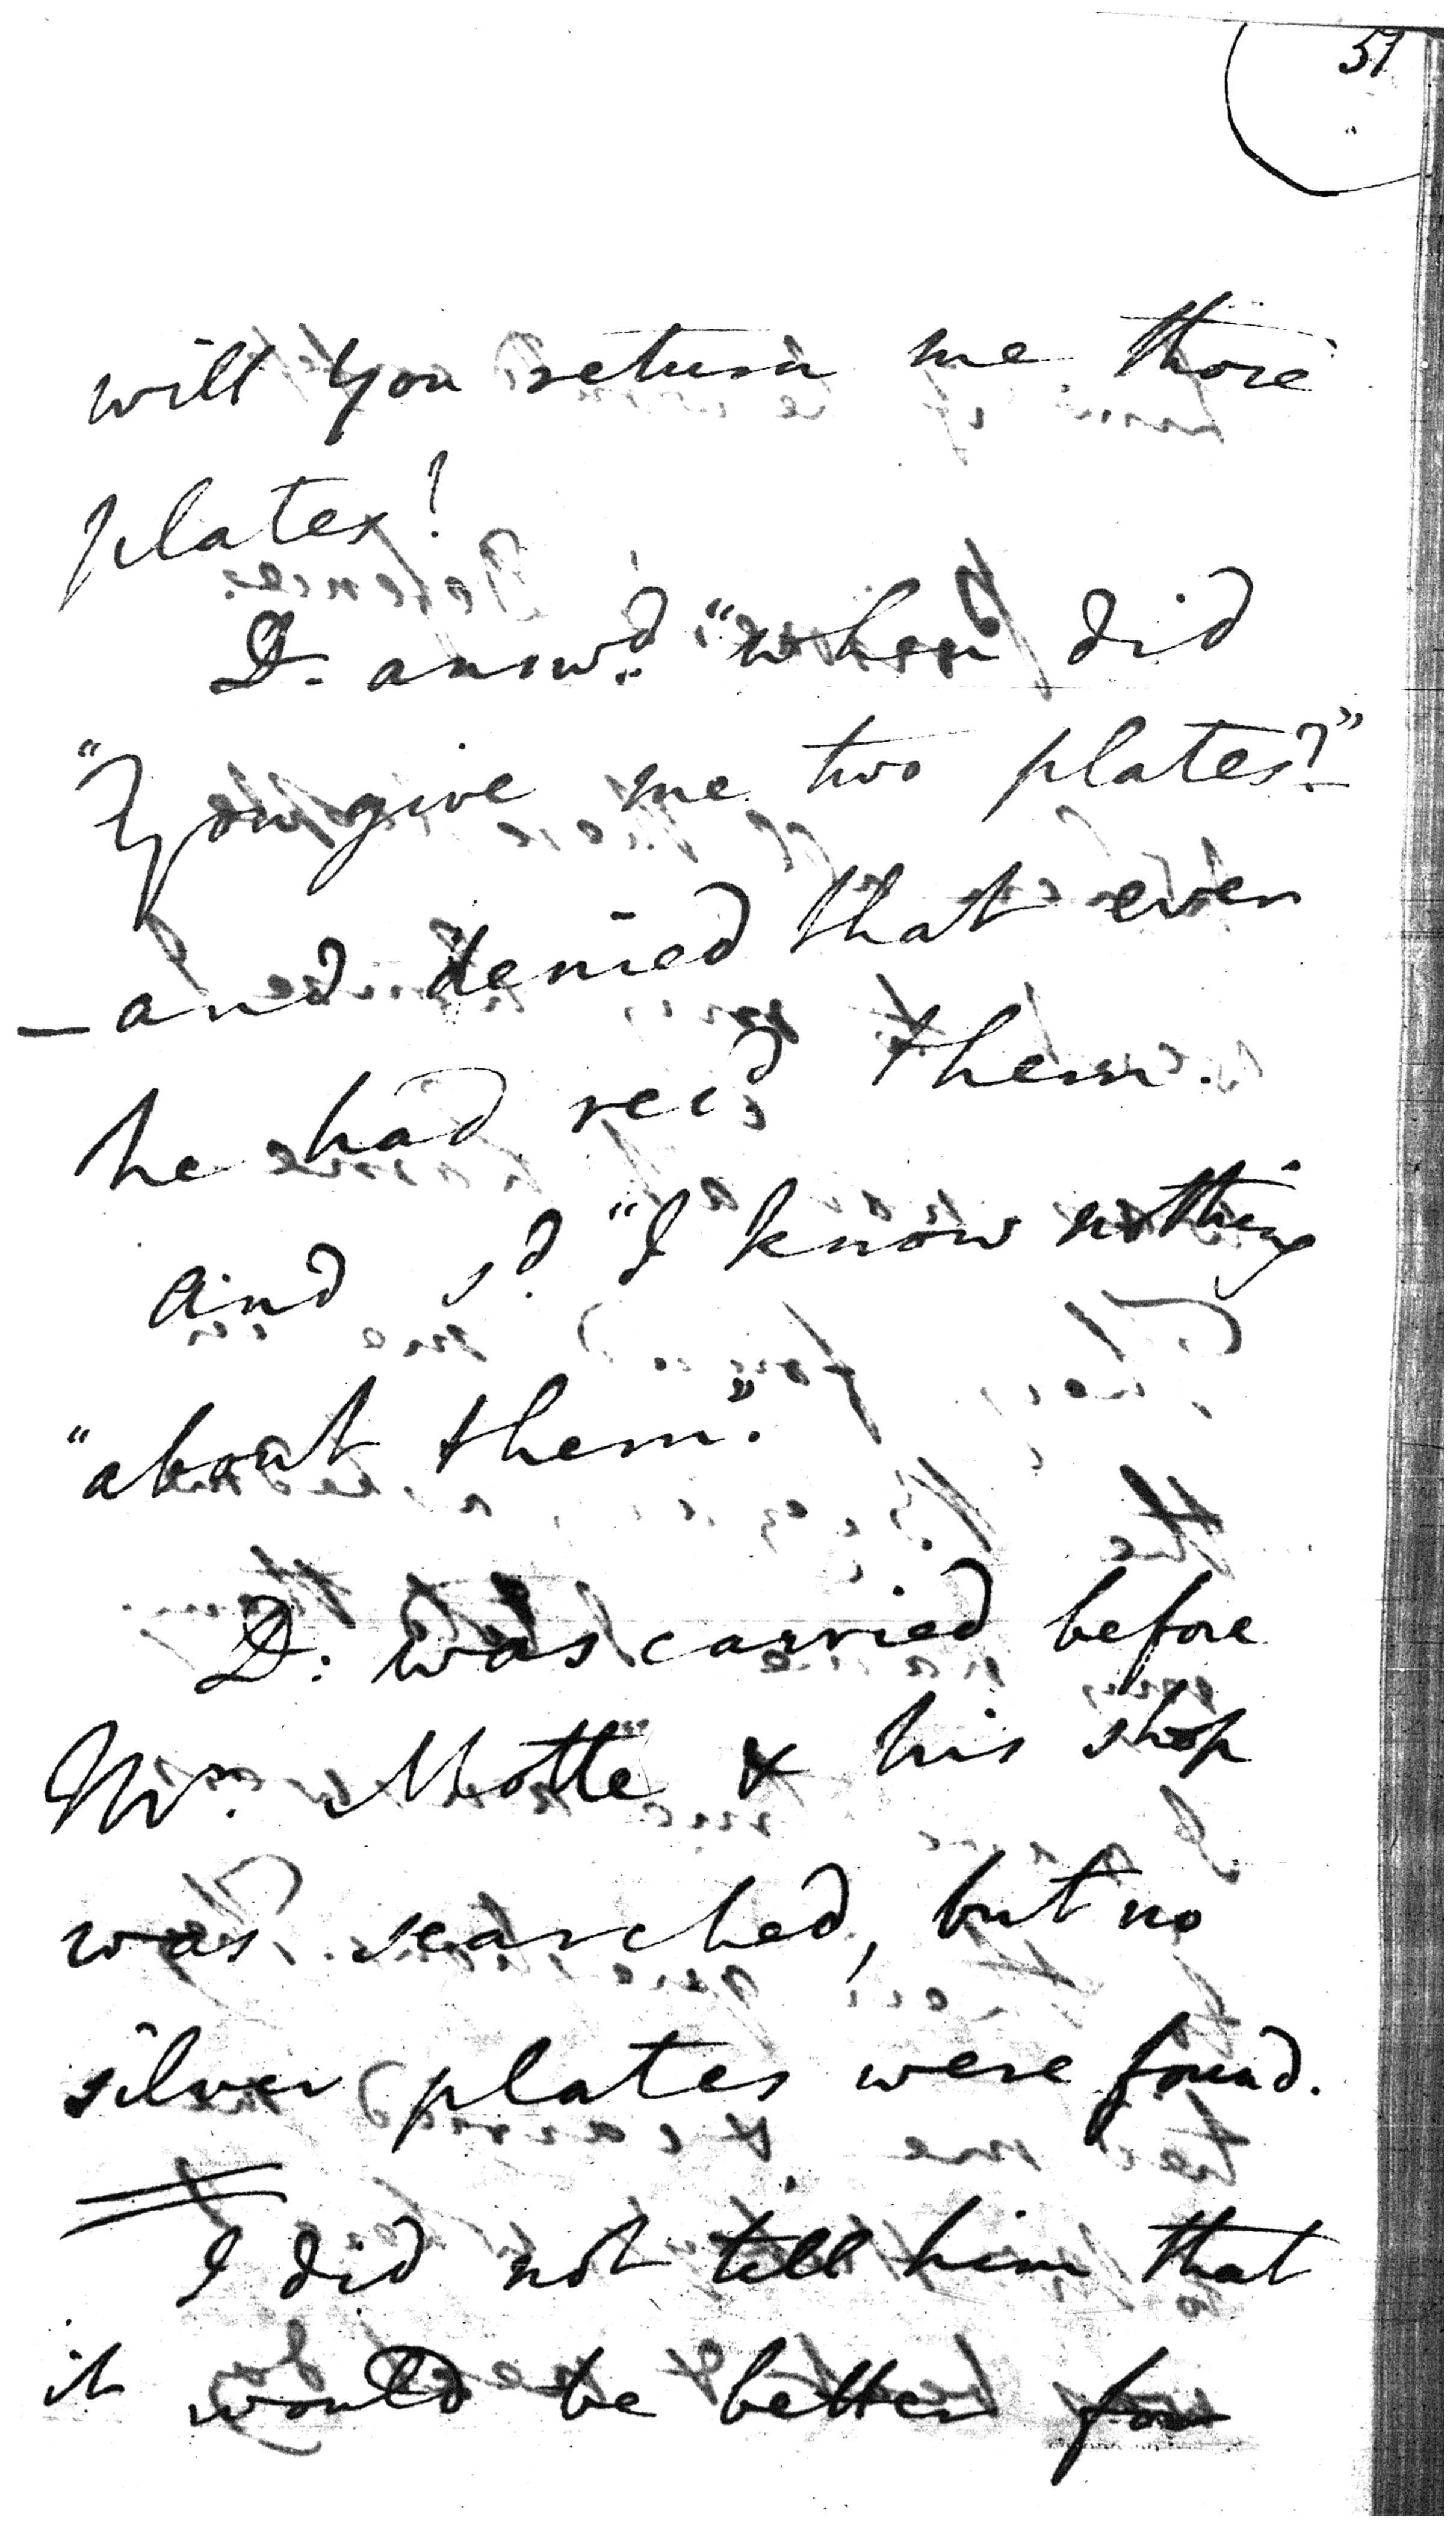 57
will you return me those
plates!
D. answd. "when did
"You give me two plates?"
— and denied that ever
he had recd them.
and sd. "I know nothing
"about them".
D. was carried before
Mr. Motte & his shop
was searched, but no
silver plates were found.
I did not tell him that
it would be better for